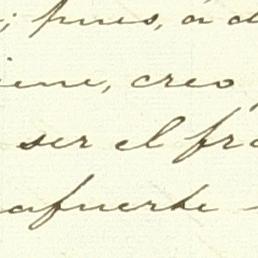 ; pues, a d
iene, creo
ser el fra
afuerte